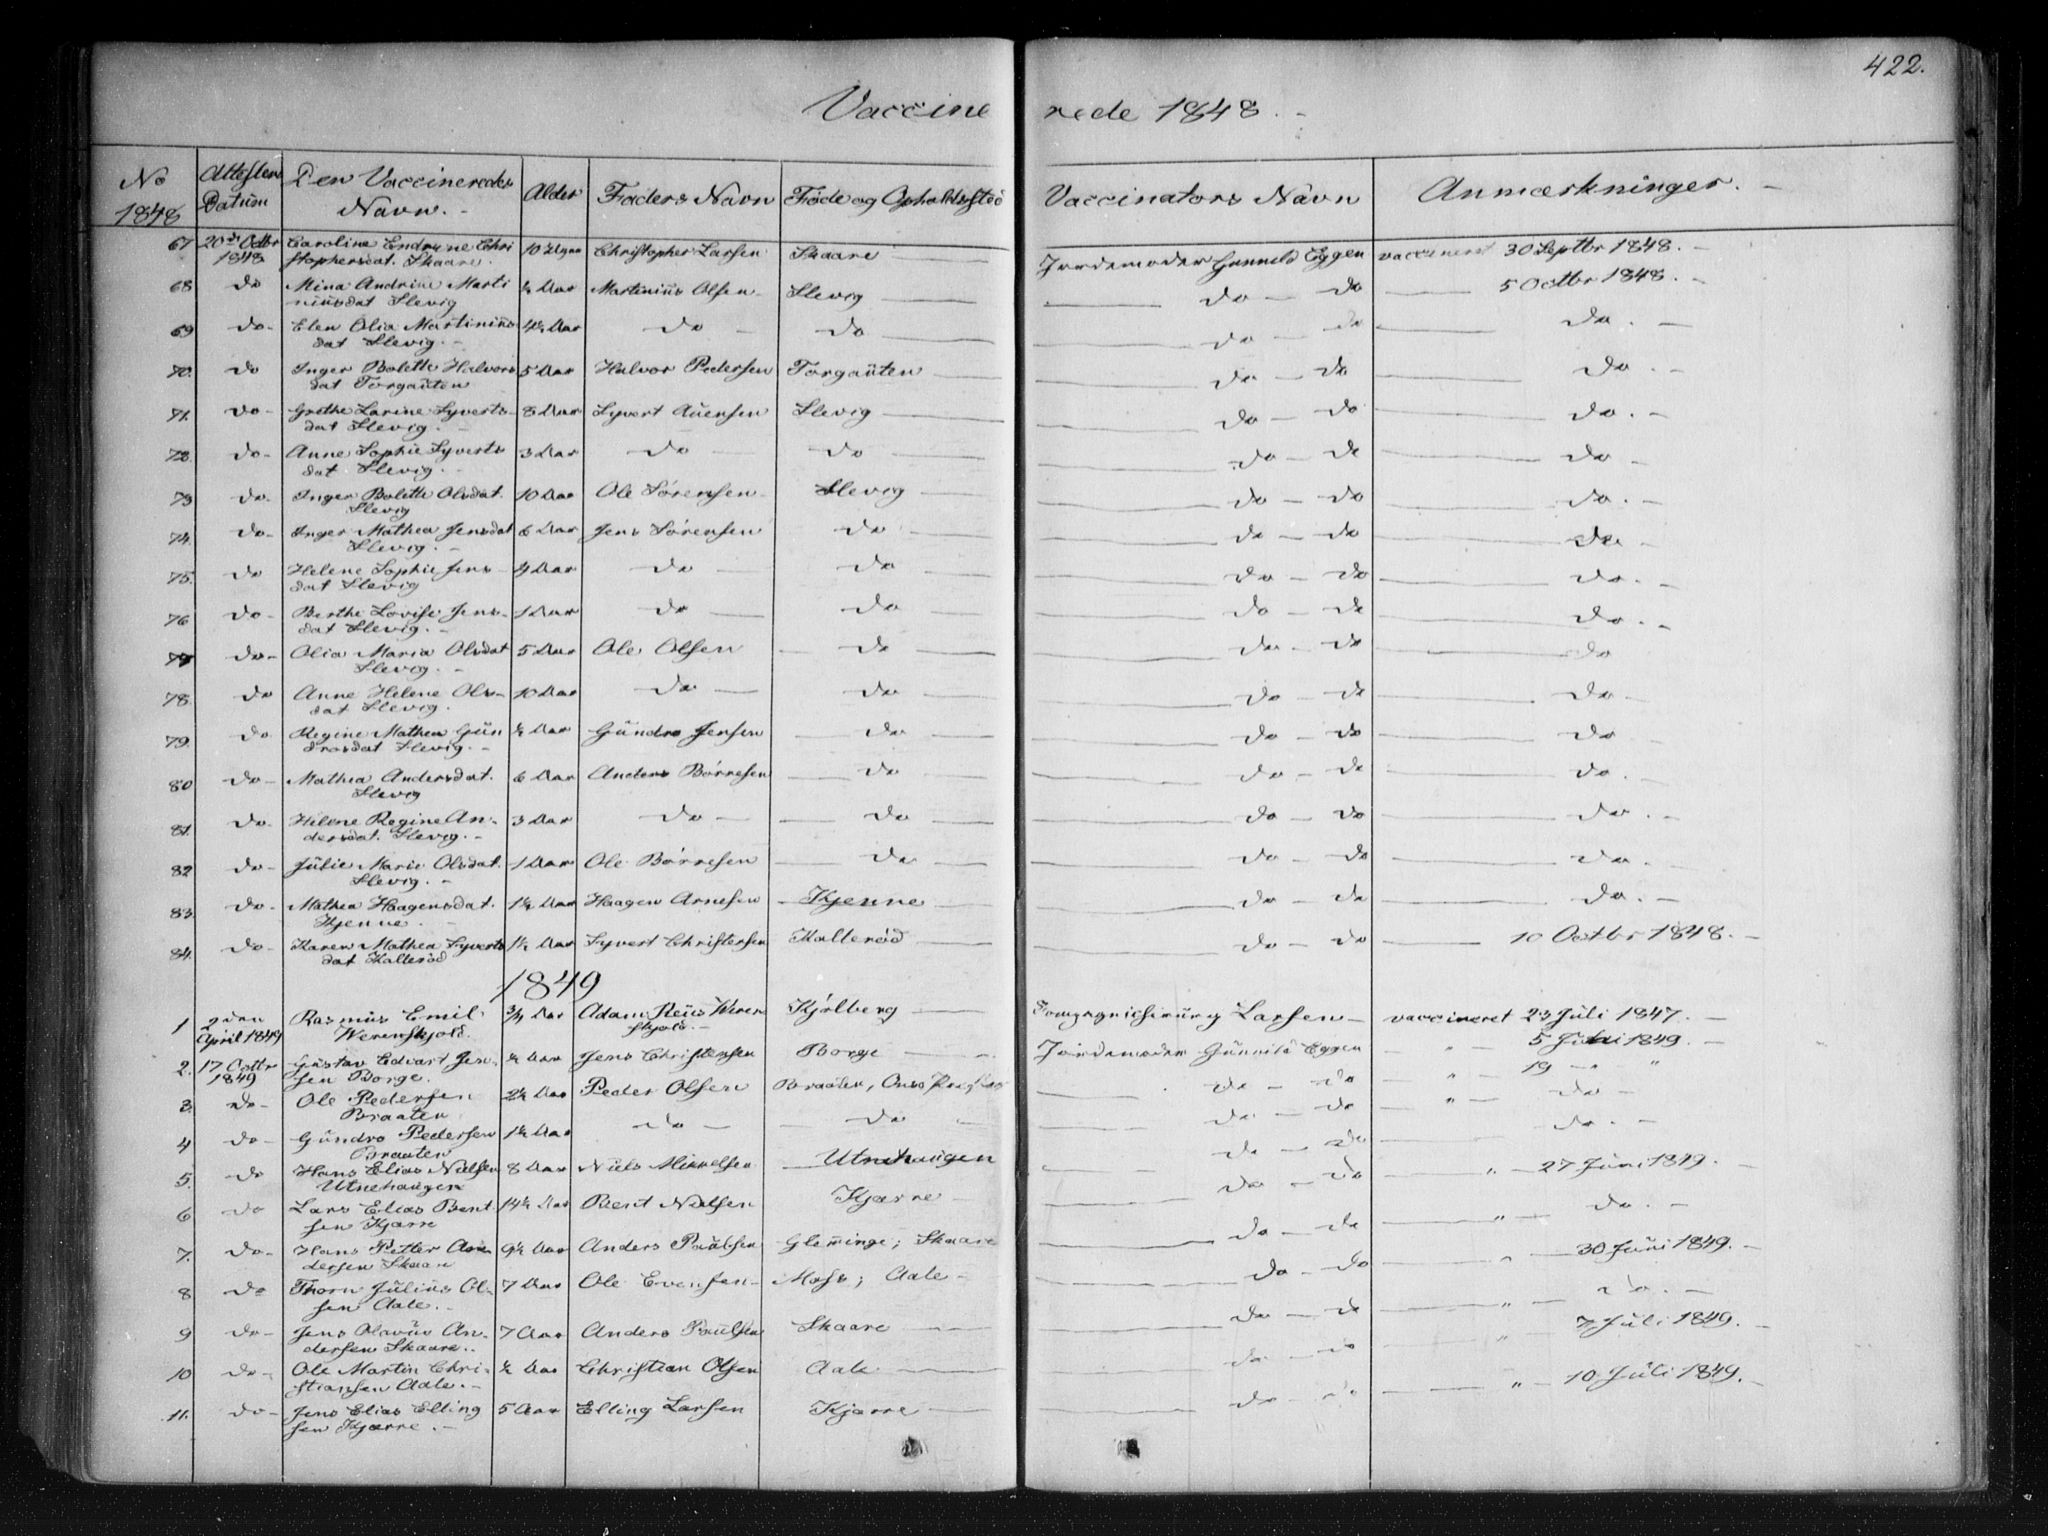 422.
Vaccinerede 1848. -
No 1848 Attestens Datum Den Vaccineredes Navn. - Alder Faders Navn Føde og Opholdssted Vaccinators Navn Anmærkninger. -
67 20de Octbr 1848 Caroline Christophersdat. Skaare. 10 Christopher Larsen Skaare Jordemoder Gunnild Eggen vaccineret 30 Septbr 1848. -
68 do Mina Andrine Martiniusdat Slevig ½ Aar Martinius Olsen Slevig do - do 5 Octbr 1848. -
69 do- Elen Olia Martiniusdat Slevig. - 4½ Aar do do do - do do. -
70. do Inger Bolette Halvorsdat Torgauten 5 Aar Halvor Pedersen Torgauten do - do do. -
71. do- Grethe Larine Syvertsdat Slevig. - 8 Aar Syvert Auensen Slevig do - do do. -
72. do- Anne Sophie Syvertsdat Slevig. - 3 Aar do do do - do do -
73 do- Inger Bolette Olsdat. Slevig 10 Aar Ole Sørensen Slevig do - do do. -
74. do- Inger Mathea Jensdat Slevig. - 6 Aar Jens Sørensen do do - do do -
75. do Helene Sophie Jensdat Slevig 4 Aar do do do - do do. -
76 do- Berthe Lovise Jensdat Slevig. - 1 Aar do do do - do do. -
77 do- Olia Maria Olsdat Slevig. - 5 Aar Ole Olsen do do - do do
78. do Anne Helene Olsdat Slevig. 10 Aar do do do - do do -
79. do Regine Mathea Gundrosdat Slevig. - ½ Aar Gundro Jensen do do - do do
80 do- Mathea Andersdat. Slevig 6 Aar Anders Børresen do do - do do.
81. do- Helene Regine Andersdat. Slevig. - 3 Aar do do do - do do. -
82 do- Julie Marie Olsdat. Slevig. - 1 Aar Ole Børresen do do - do do. -
83. do- Mathea Haagensdat. Kjenne - 1½ Aar Haagen Arnesen Kjenne do - do do. -
84. do- Karen Mathea Syvertsdat Kallerød 1½ Aar Syvert Christersen Kallerød do - do 10 Octbr 1848. -
1849
1 2den April 1849 Rasmus Emil Werenskjold. ¾ Aar Adam Werenskjold. - Kjølberg Larsen - vaccineret 23 Juli 1847. -
2. 17 Octbr 1849 Gustav Edvart Jensen Borge. ½ Aar Jens Christensen Borge Jordemoder Gunnild Eggen " - 5 1849. -
3. do- Ole Pedersen Braaten 2½ Aar Peder Olsen Braaten, Onsø do - do " - 19 - " "
4 do- Gundro Pedersen Braaten 1½ Aar do do do - do " - do -
5. do Hans Elias Nielsen Utnehaugen 8 Aar Niels Mikkelsen Utnehaugen do - do do. -
6 do Lars Elias Bentsen Kjærre 14½ Aar Bent Nielsen Kjærre do - do " - 27 Juni 1849. -
7. do- Hans Petter Andersen Skaare 9½ Aar Anders Paulsen Glemminge; Skaare do - do " - do. -
8 do Thorn Julius Olsen Aale. - 7 Aar Ole Evensen Moss; Aale do - do " - 30 Juni 1849. -
9 do- Jens Olavus Andersen Skaare. - 7 Aar Anders Paulsen Skaare do - do " - do. -
10 do- Ole Martin Christiansen Aale. - ½ Aar Christian Olsen Aale do - do " 7 Juli 1849. -
11. do- Jens Elias Ellingsen Kjærre. - 5 Aar Elling Larsen Kjærre do - do " - 10 Juli 1849. -